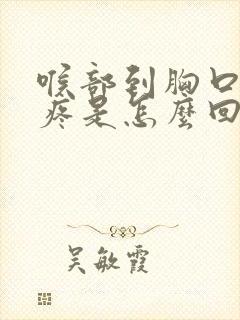 喉部到胸口
疼是怎麼回
吴敏霞